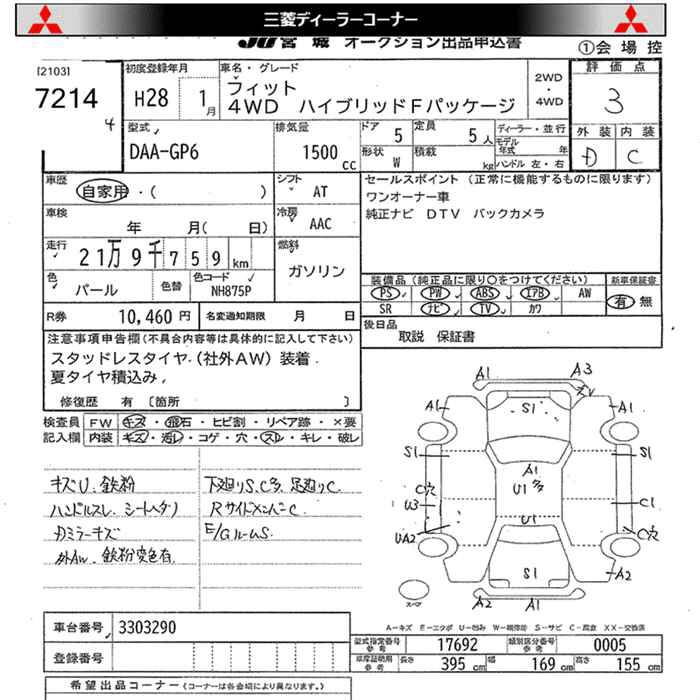 三菱ディーラーコーナー
JU宮城 オークション出品申込書
①会場控
[2103]
7214
4
初度登録年月
H28 1月
車名・グレード
フィット
4WD ハイブリッドFパッケージ
2WD
・
4WD
評価点
3
外装 内装
D C
型式
DAA-GP6
排気量
1500cc
ドア 5
定員 5人
ディーラー・並行
モデル年式 年
形状 W
積載 kg
ハンドル 左・右
車歴
自家用・( )
シフト
AT
セールスポイント (正常に機能するものに限ります)
ワンオーナー車
純正ナビ DTV バックカメラ
車検
年 月( 日)
冷房
AAC
走行
21万9千759km
燃料
ガソリン
色
パール
色替
色コード
NH875P
装備品(純正品に限り○をつけてください)
新車保証書
PS PW ABS エアB AW
SR ナビ TV カワ
有 無
R券 10,460円
名変通知期限 月 日
後日品
取説 保証書
注意事項申告欄(不具合内容等は具体的に記入して下さい)
スタッドレスタイヤ.(社外AW)装着.
夏タイヤ積込み.
修復歴 有 〔箇所 〕
検査員 FW キズ・飛石・ヒビ割・リペア跡・×要
記入欄 内装 キズ・汚レ・コゲ・穴・スレ・キレ・破レ
キズU. 鉄粉
ハンドルスレ. シートヘタリ
Dミラーキズ
外AW. 鉄粉変色有.
下廻りS.C穴. 足廻りC.
RサイドメンバーC.
E/GルームS.
A1
A3
A1
S1
A1
S1
A1
S1
C穴
U1
U3
C1
U1
UA2
C穴
S1
A2
A2
A1
スペア
A-キズ E-エクボ U-凹み W-補修跡 S-サビ C-腐食 XX-交換済
車台番号 3303290
登録番号
型式指定番号 17692
類別区分番号 0005
車庫証明用参考
長さ 395cm
幅 169cm
高さ 155cm
希望出品コーナー (コーナーは各会場により異なります。)